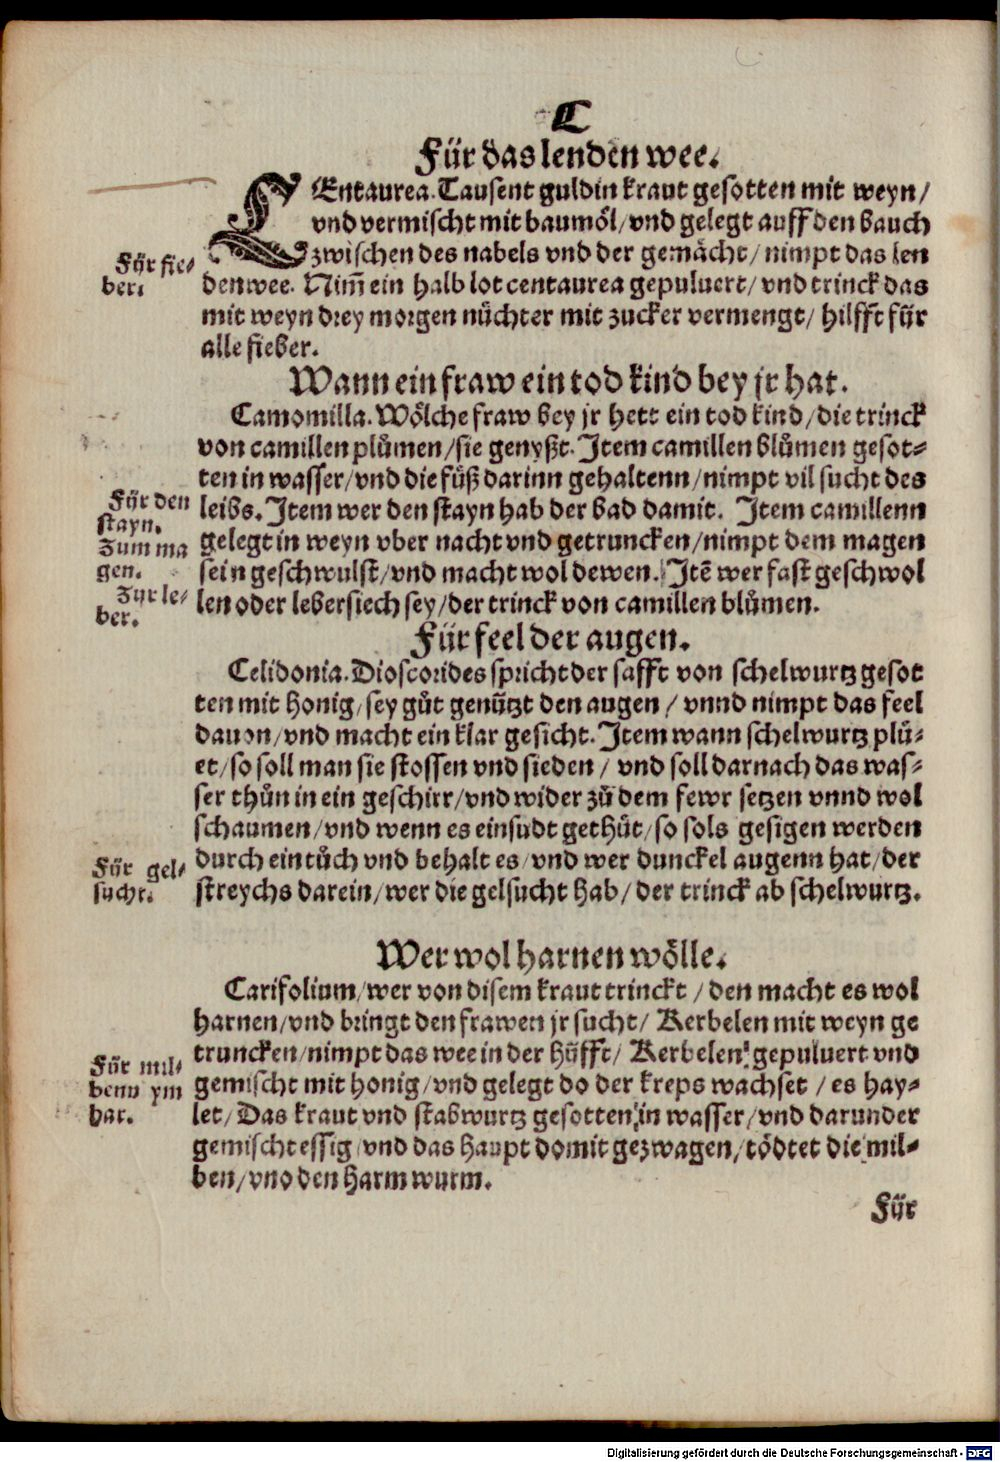 C
Für das lenden wee.
CEntaurea. Tausent guldin kraut gesotten mit weyn/
vnd vermischt mit baumöl/vnd gelegt auff den bauch
zwischen des nabels vnd der gemächt/nimpt das len
Für fie-
ber.
denwee. Nim̃ ein halb lot centaurea gepuluert/vnd trinck das
mit weyn drey morgen nüchter mit zucker vermengt/ hilfft für
alle fieber.
Wann ein fraw ein tod kind bey jr hat.
Camomilla. Wölche fraw bey jr hett ein tod kind/die trinck
von camillen plůmen/sie genyßt. Item camillen blůmen gesot-
ten in wasser/vnd die fůß darinn gehaltenn/nimpt vil sucht des
Für den
stayn.
leibs. Item wer den stayn hab der bad damit. Item camillenn
Zum ma
gen.
gelegt in weyn vber nacht vnd getruncken/nimpt dem magen
sein geschwulst/vnd macht wol dewen. Itē wer fast geschwol
Zur le-
ber.
len oder lebersiech sey/der trinck von camillen blůmen.
Für feel der augen.
Celidonia. Dioscorides spricht der safft von schelwurtz gesot
ten mit honig/sey gůt genützt den augen/ vnnd nimpt das feel
dauon/vnd macht ein klar gesicht. Item wann schelwurtz plů-
et/so soll man sie stossen vnd sieden/ vnd soll darnach das was-
ser thůn in ein geschirr/vnd wider zů dem fewr setzen vnnd wol
schaumen/vnd wenn es einsudt gethůt/so sols gesigen werden
durch ein tůch vnd behalt es/vnd wer dunckel augenn hat/der
Für gel-
sucht.
streychs darein/wer die gelsucht hab/der trinck ab schelwurtz.
Wer wol harnen wölle.
Carifolium/wer von disem kraut trinckt/den macht es wol
harnen/vnd bringt den frawen jr sucht/ Kerbelen mit weyn ge
truncken/nimpt das wee in der hüfft/ Kerbelen gepuluert vnd
Für mil-
benn ym
har.
gemischt mit honig/vnd gelegt do der kreps wachset/es hay-
let/Das kraut vnd stabwurtz gesotten in wasser/vnd darunder
gemischt essig/vnd das haupt domit gezwagen/tödtet die mil-
ben/vnd den harmwurm.
Für
Digitalisierung gefördert durch die Deutsche Forschungsgemeinschaft - DFG